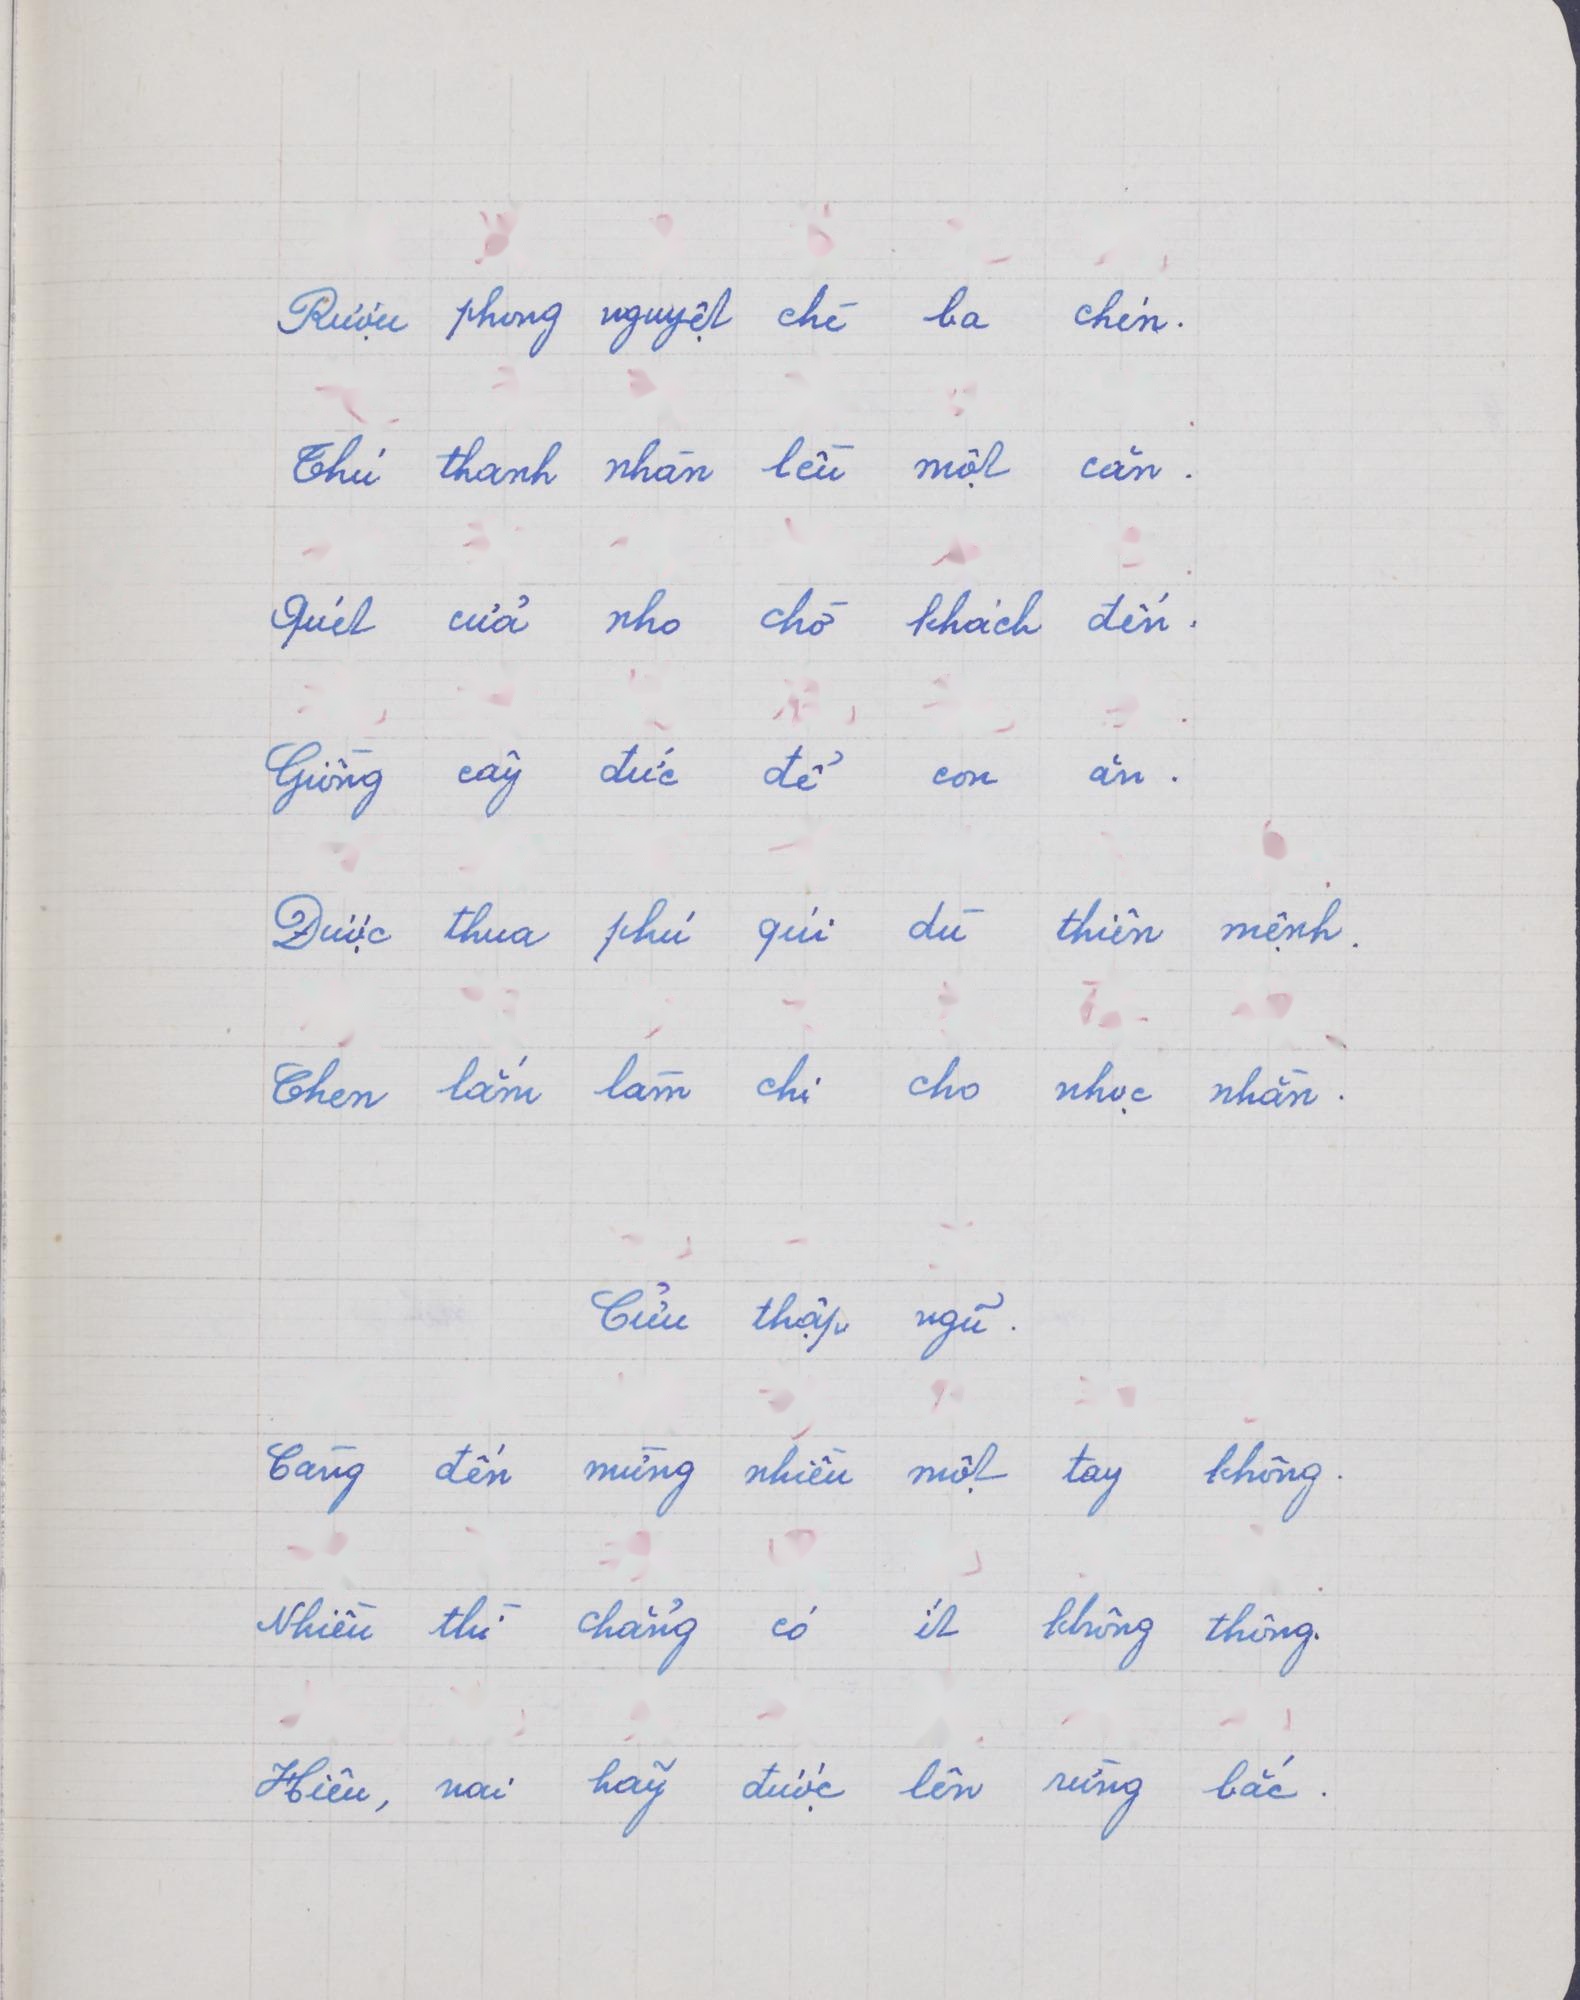 Rượu phong nguyệt chè ba chén.
Thú thanh nhàn lều một căn.
Quét cửa nho chờ khách đến.
Giồng cây đức để con ăn.
Được thua phú quí dù thiên mệnh.
Chen lấn làm chi cho nhọc nhằn.
Cửu thập ngũ.
Càng đến mừng nhiều một tay không.
Nhiều thì chẳng có ít không thông.
Hiêu, nai hãy được lên rừng bắc.